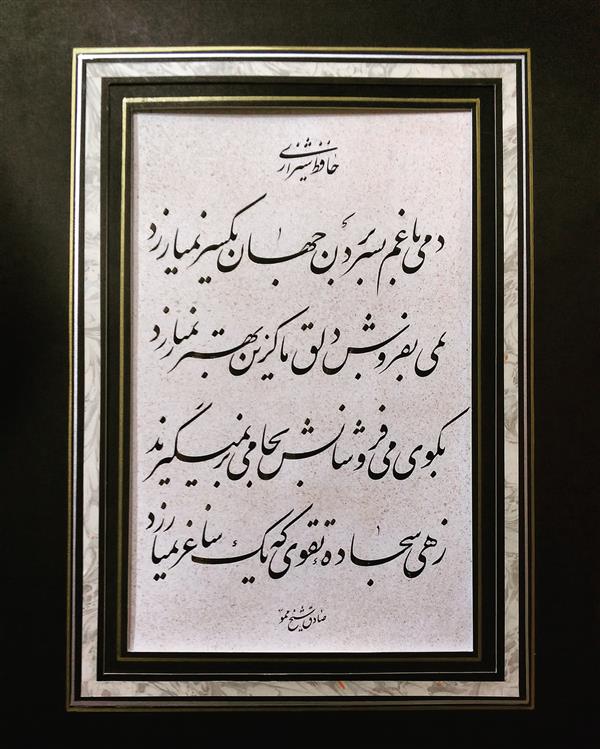 حافظ شیرازی
دمی با غم بسر بردن جهان یکسر نمیارزد
بمی بفروش دلق ما کزین بهتر نمیارزد
بکوی می فروشانش بجامی بر نمیگیرند
زهی سجاده تقوی که یک ساغر نمیارزد
صادق شیخ